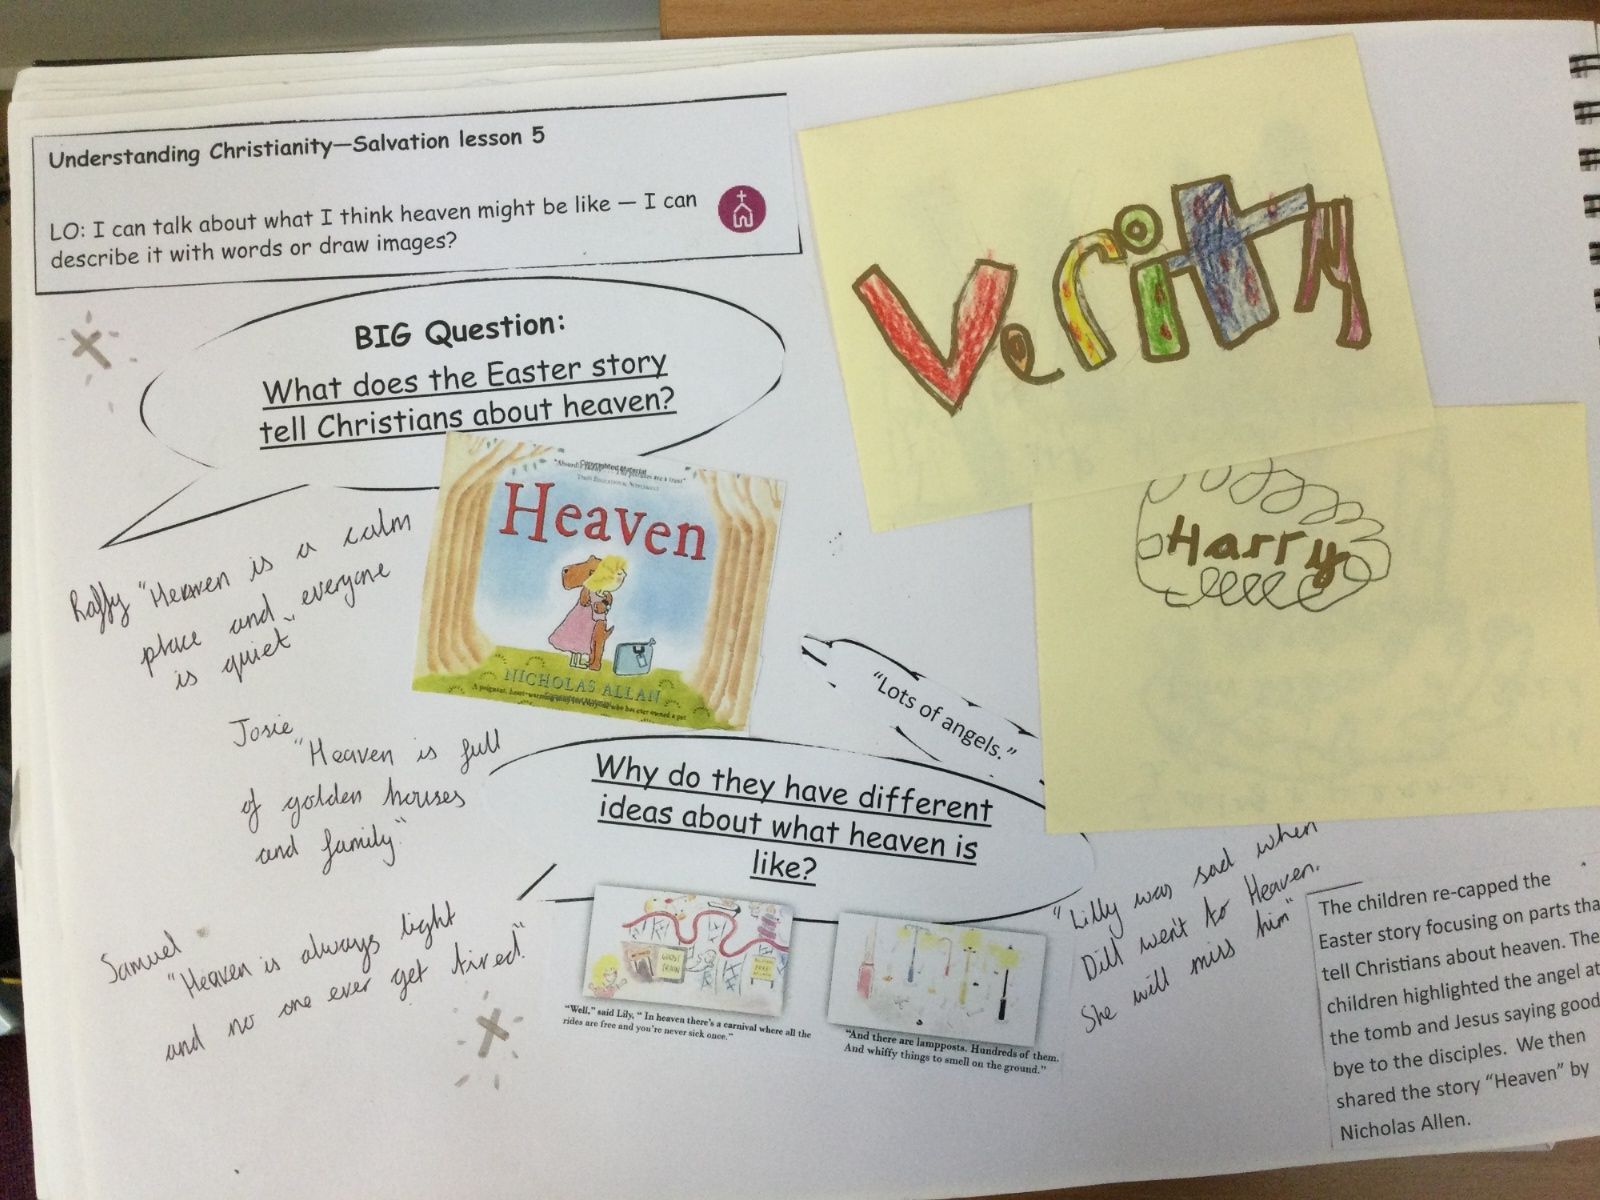 Understanding Christianity—Salvation lesson 5
LO: I can talk about what I think heaven might be like — I can
describe it with words or draw images?
BIG Question:
What does the Easter story
tell Christians about heaven?
Verity
Harry
Copyrighted Material
Heaven
NICHOLAS ALLAN
Raffy "Heaven is a calm
place and everyone
is quiet"
Josie
"Heaven is full
of golden houses
and family"
Samuel
"Heaven is always light
and no one ever get tired."
"Lots of angels."
Why do they have different
ideas about what heaven is
like?
GHOST
TRAIN
"Well," said Lily, "In heaven there's a carnival where all the
rides are free and you're never sick once."
"And there are lampposts. Hundreds of them.
And whiffy things to smell on the ground."
"Lilly was sad when
Dill went to Heaven.
She will miss him"
The children re-capped the
Easter story focusing on parts tha
tell Christians about heaven. The
children highlighted the angel at
the tomb and Jesus saying good
bye to the disciples. We then
shared the story "Heaven" by
Nicholas Allen.